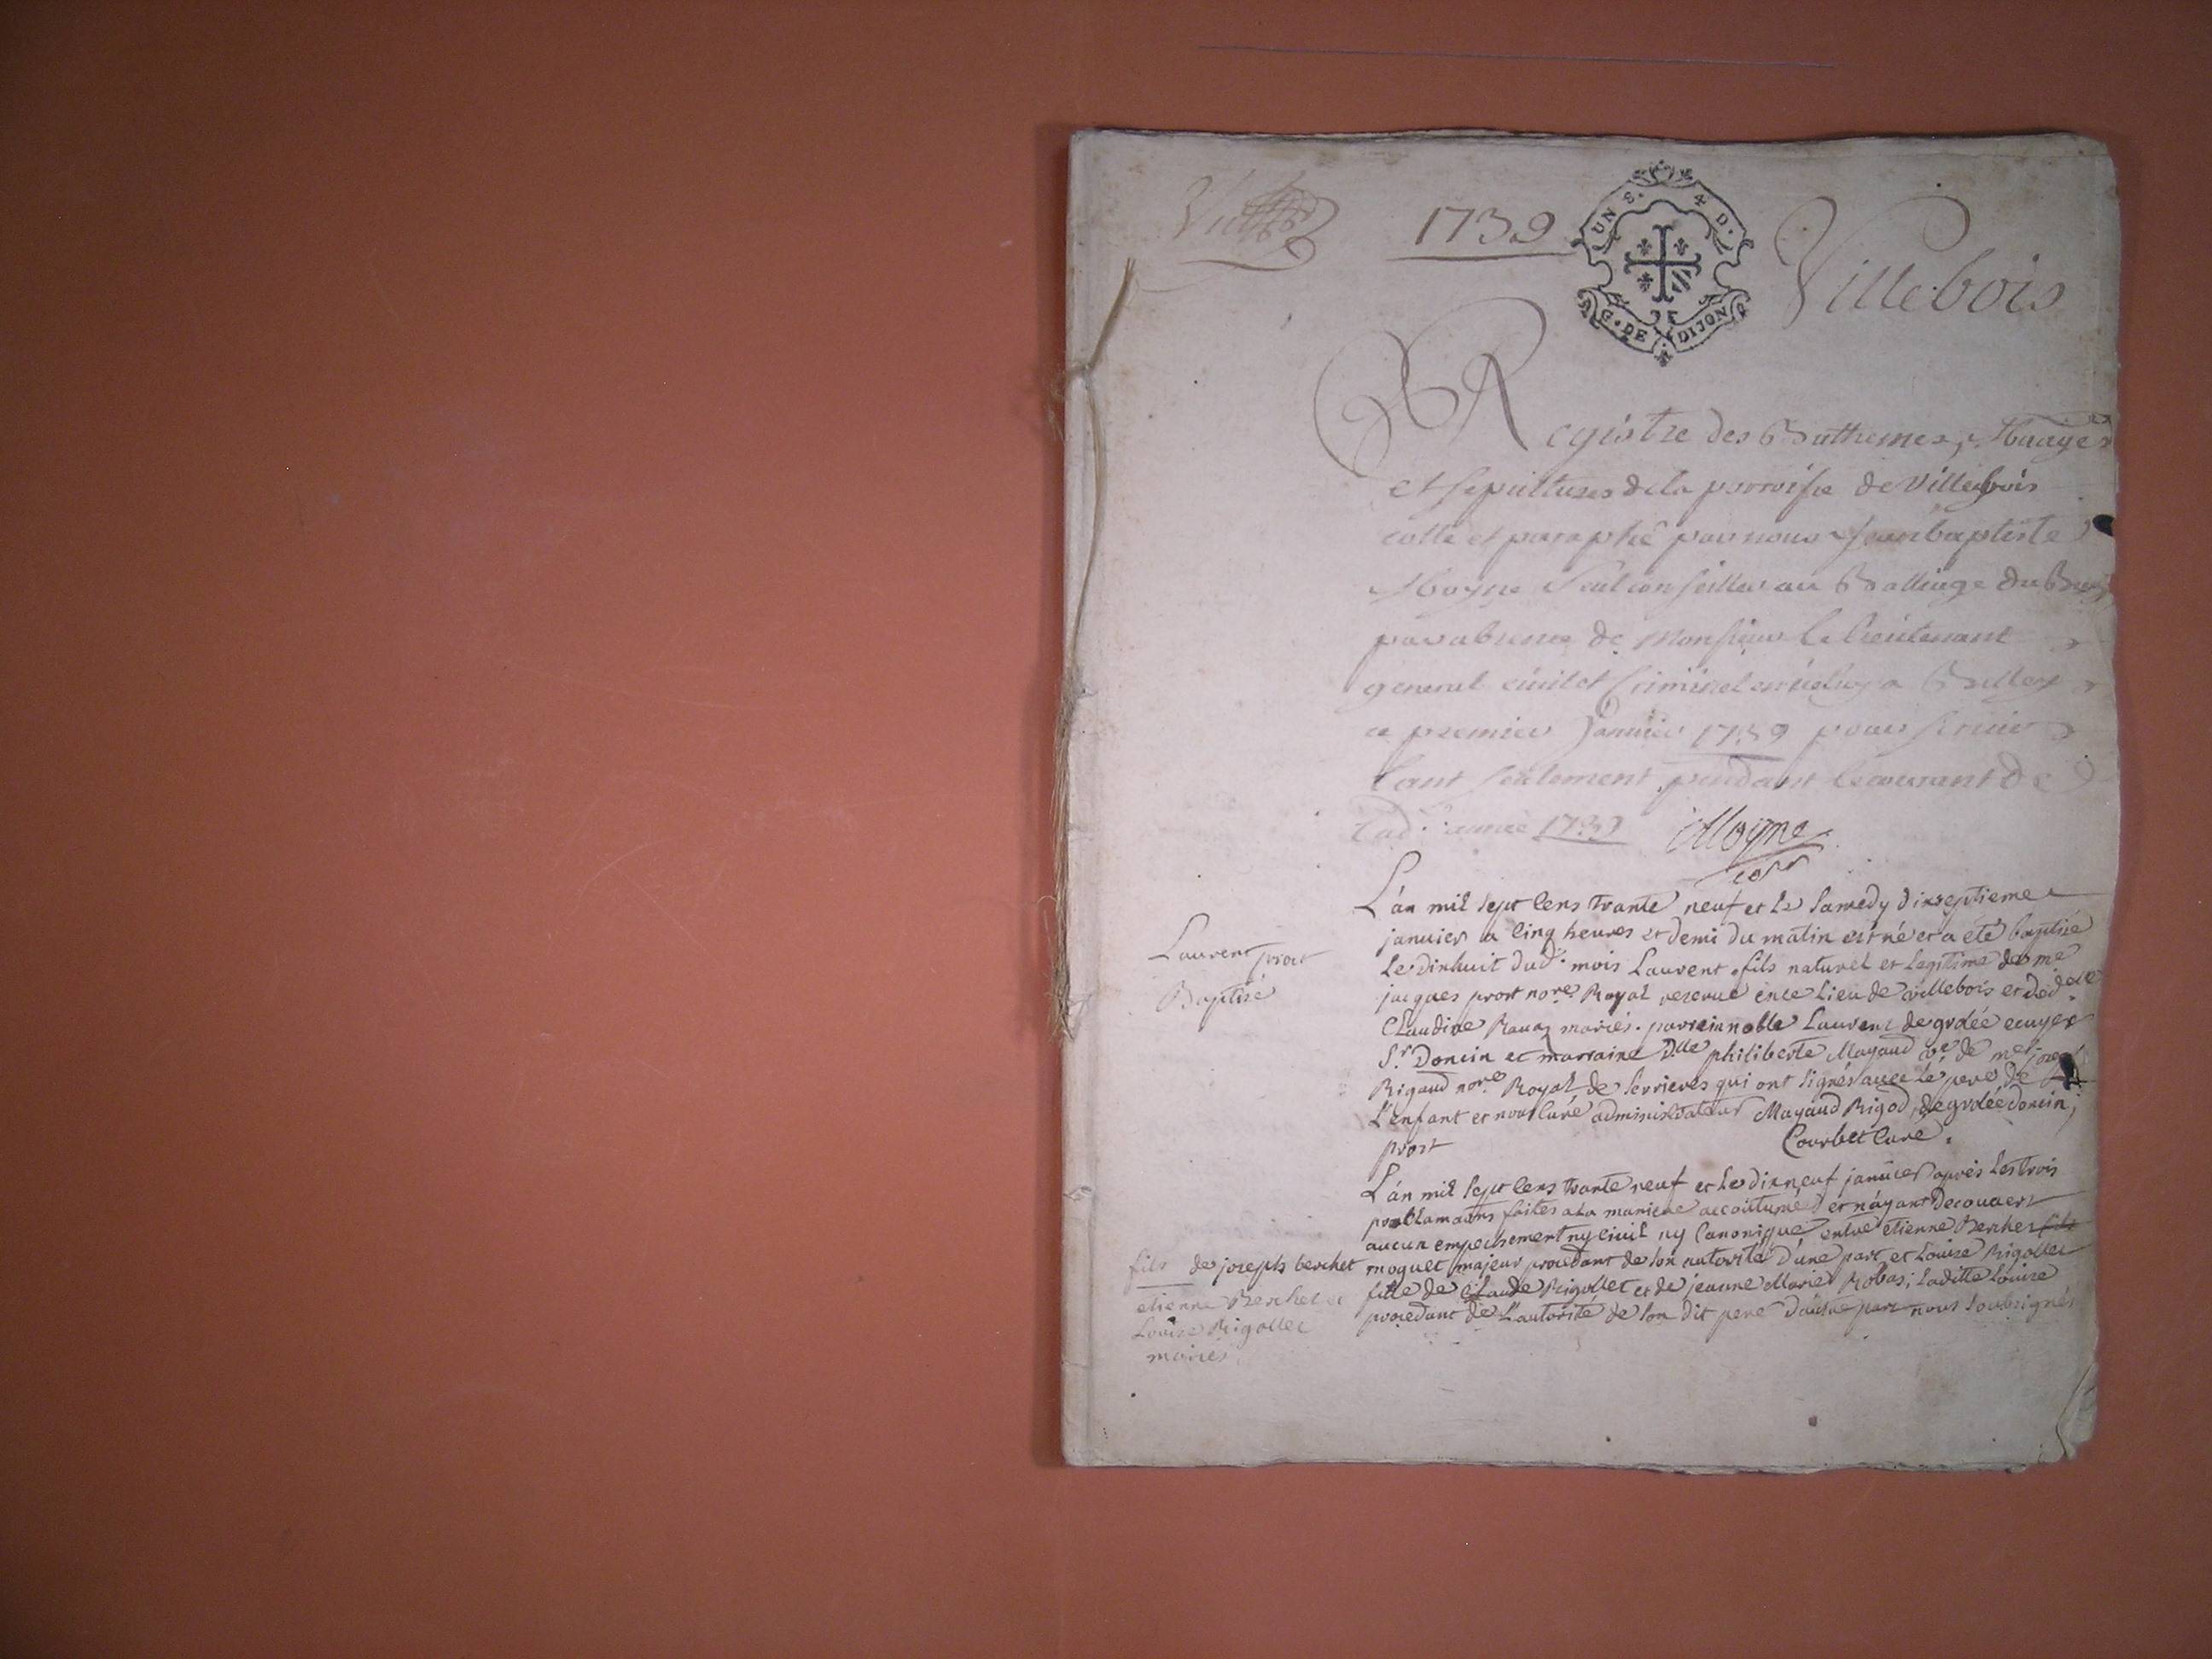 1739
UN S. 4 D.
G. DE DIJON
Villebois
Registre des Bathemes, Mariages
et sepultures de la parroisse de Villebois
cotté et paraphé par nous Jean baptiste
Moyne seul conseiller au Balliage du Bugey
par absence de Monsieur le lieutenant
general civil et Criminel a Belley
ce premier Janvier 1739 pour servir
tant seulement pendant le courant de
lad. année 1739 Moyne
L'an mil sept cens trante neuf et le samedy dixseptieme
janvier a cinq heures et demi du matin est né et a été baptisé
le dixhuit dud. mois Laurent fils naturel et legitime de me
jacques prost nore Royal reservé en ce lieu de villebois et de delle
Claudine Ravaz mariés. parrein noble Laurent de grolée ecuyer
Sr. Doncin et marraine Dlle philiberte Mayaud ve de me
Rigaud nore Royal de serrieres qui ont signés avec le pere de
L'enfant et nous curé administrateur Mayaud Rigod, de grolée doncin,
prost Courbet curé.
Laurent prost
Baptisé
L'an mil sept cens trante neuf et le dixneuf janvier après les trois
proclamaons faites a la maniere accoutumée et n'ayant decouvert
aucun empechement ny civil ny Canonique, entre etienne Berchet fils
moquet majeur procedant de son autorité d'une part et Louise Rigollet
fille de Claude Rigollet et de jeanne Marie Robas; laditte Louise
procedant de L'autorité de son dit pere d'autre part nous soubsignés
fils de joseph berchet
etienne Berchet et
Louise Rigollet
mariés